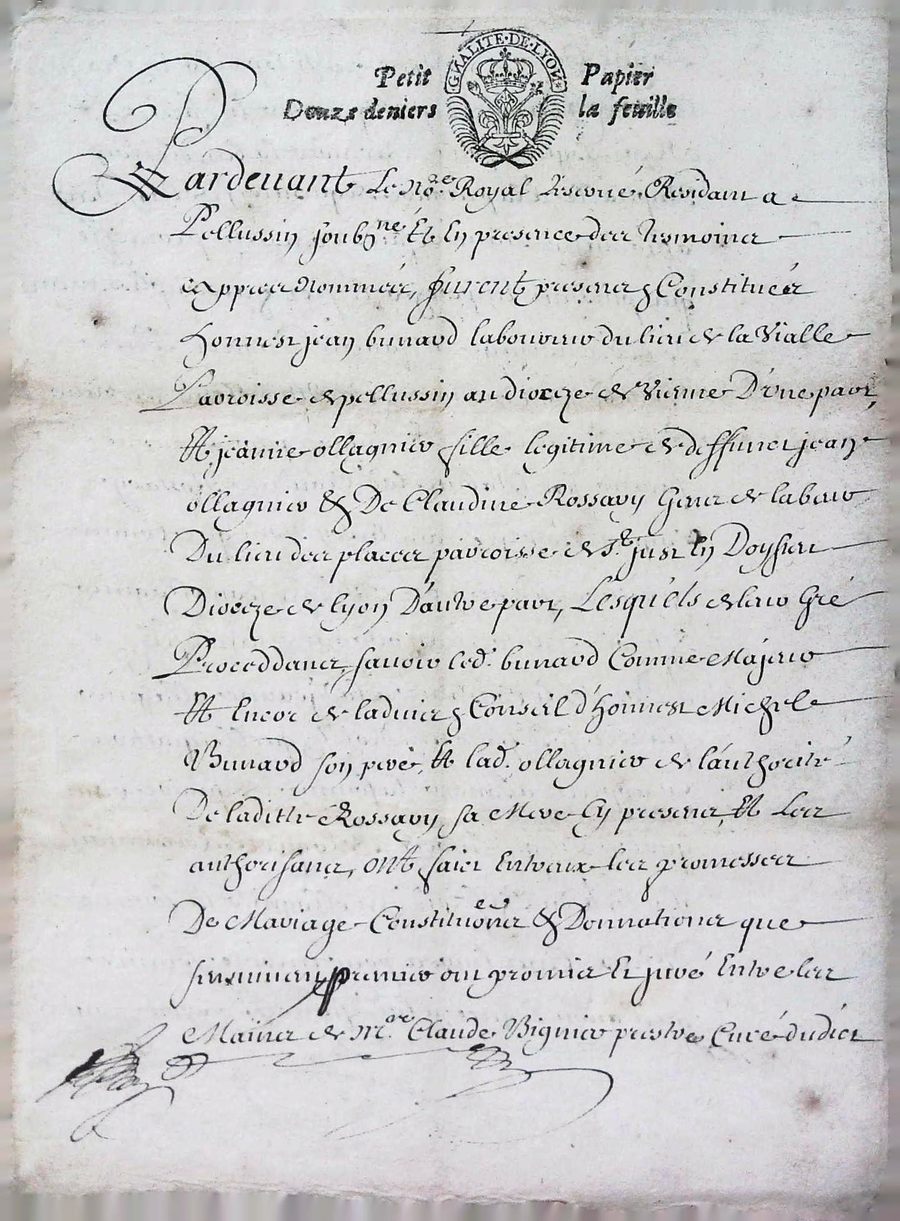 GNALITE·DE·LYON
Petit Papier
Douze deniers la feuille
Pardevant Le No.re Royal Resdant a
Pellussin soubz.né Et En presence des tesmoins
Appres Nommés, furent presents & Constitués
Honnest jean bunard laboureur du lieu de la Vialle
Parroisse de pellussin au dioceze de Vienne D'une part,
Et jeanne ollagnier fille legitime de deffunct jean
ollagnier & De Claudine Rossary Gens de labeur
Du lieu des places parroisse de St. just En Doysieu
Dioceze de lyon D'autre part, Lesquels de leur Gré
Proceddants, savoir led. bunard Comme Majeur
Et Encor de ladvis & Conseil d'Honnest Michel
Bunard son pere, Et lad. ollagnier de l'authorité
De laditte Rossary sa Mere Cy presente, Et Les
authorisants, ont faict Entreux les promesses
De Mariage Constitutions & Donnations que
s'ensuivent, premier ont promis Et juré Entre les
Mains de Mre. Claude Vignier prestre Curé dudict